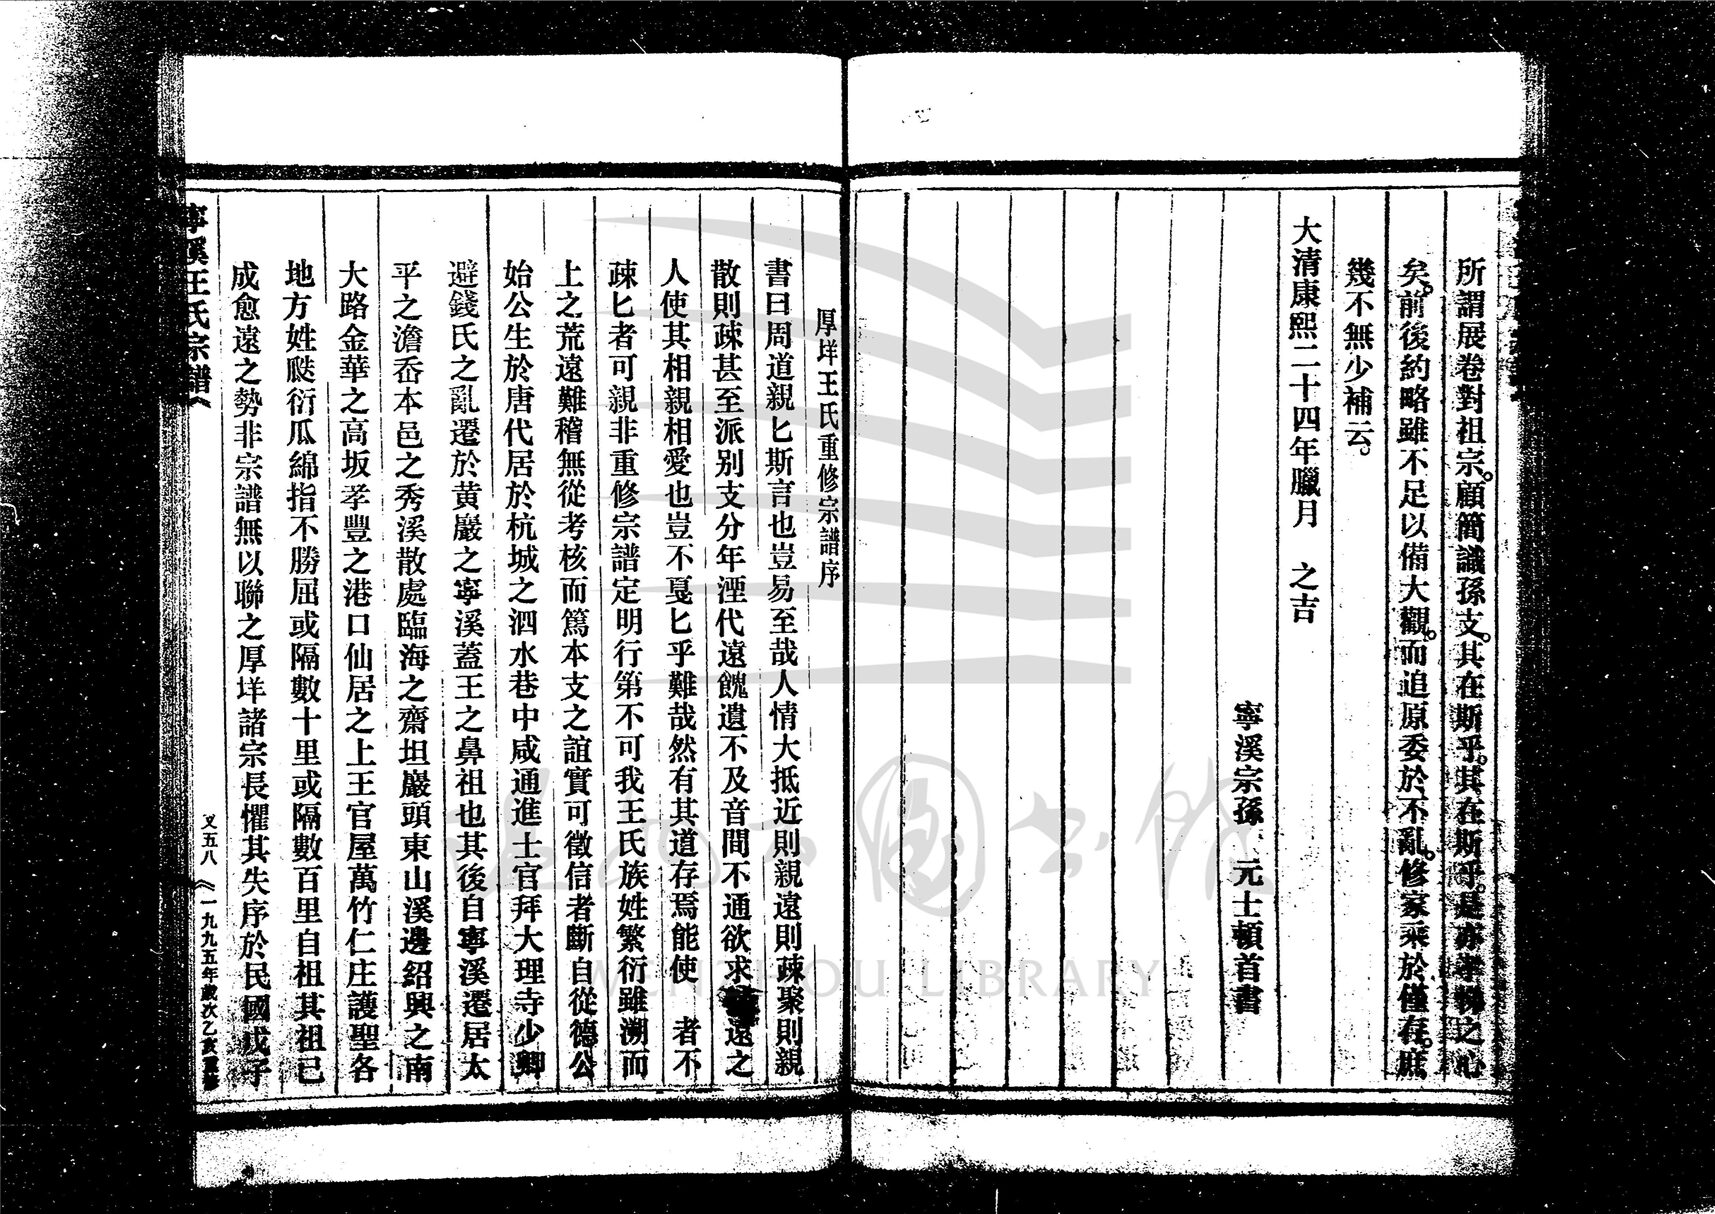 所謂展卷對祖宗。顧簡識孫支。其在斯乎。其在斯乎。是亦孝物之心
矣。前後約略雖不足以備大觀。而追原委於不亂。修家乘於僅存。庶
幾不無少補云。
大清康熙二十四年臘月　之吉
寧溪宗孫　元士頓首書
厚垟王氏重修宗譜序
書曰周道親匕斯言也豈易至哉人情大抵近則親遠則疎聚則親
散則疎甚至派別支分年湮代遠餽遺不及音間不通欲求遠之
人使其相親相愛也豈不戛匕乎難哉然有其道存焉能使　者不
疎匕者可親非重修宗譜定明行第不可我王氏族姓繁衍雖溯而
上之荒遠難稽無從考核而篤本支之誼實可徵信者斷自從德公
始公生於唐代居於杭城之泗水巷中咸通進士官拜大理寺少卿
避錢氏之亂遷於黄巖之寧溪蓋王之鼻祖也其後自寧溪遷居太
平之澹岙本邑之秀溪散處臨海之齋坦巖頭東山溪邊紹興之南
大路金華之高坂孝豐之港口仙居之上王官屋萬竹仁庄護聖各
地方姓瞇衍瓜綿指不勝屈或隔數十里或隔數百里自祖其祖已
成愈遠之勢非宗譜無以聯之厚垟諸宗長懼其失序於民國戊子
寧溪王氏宗譜
又五八　一九九五年歲次乙亥重修
温州市圖書館
WENZHOU LIBRARY